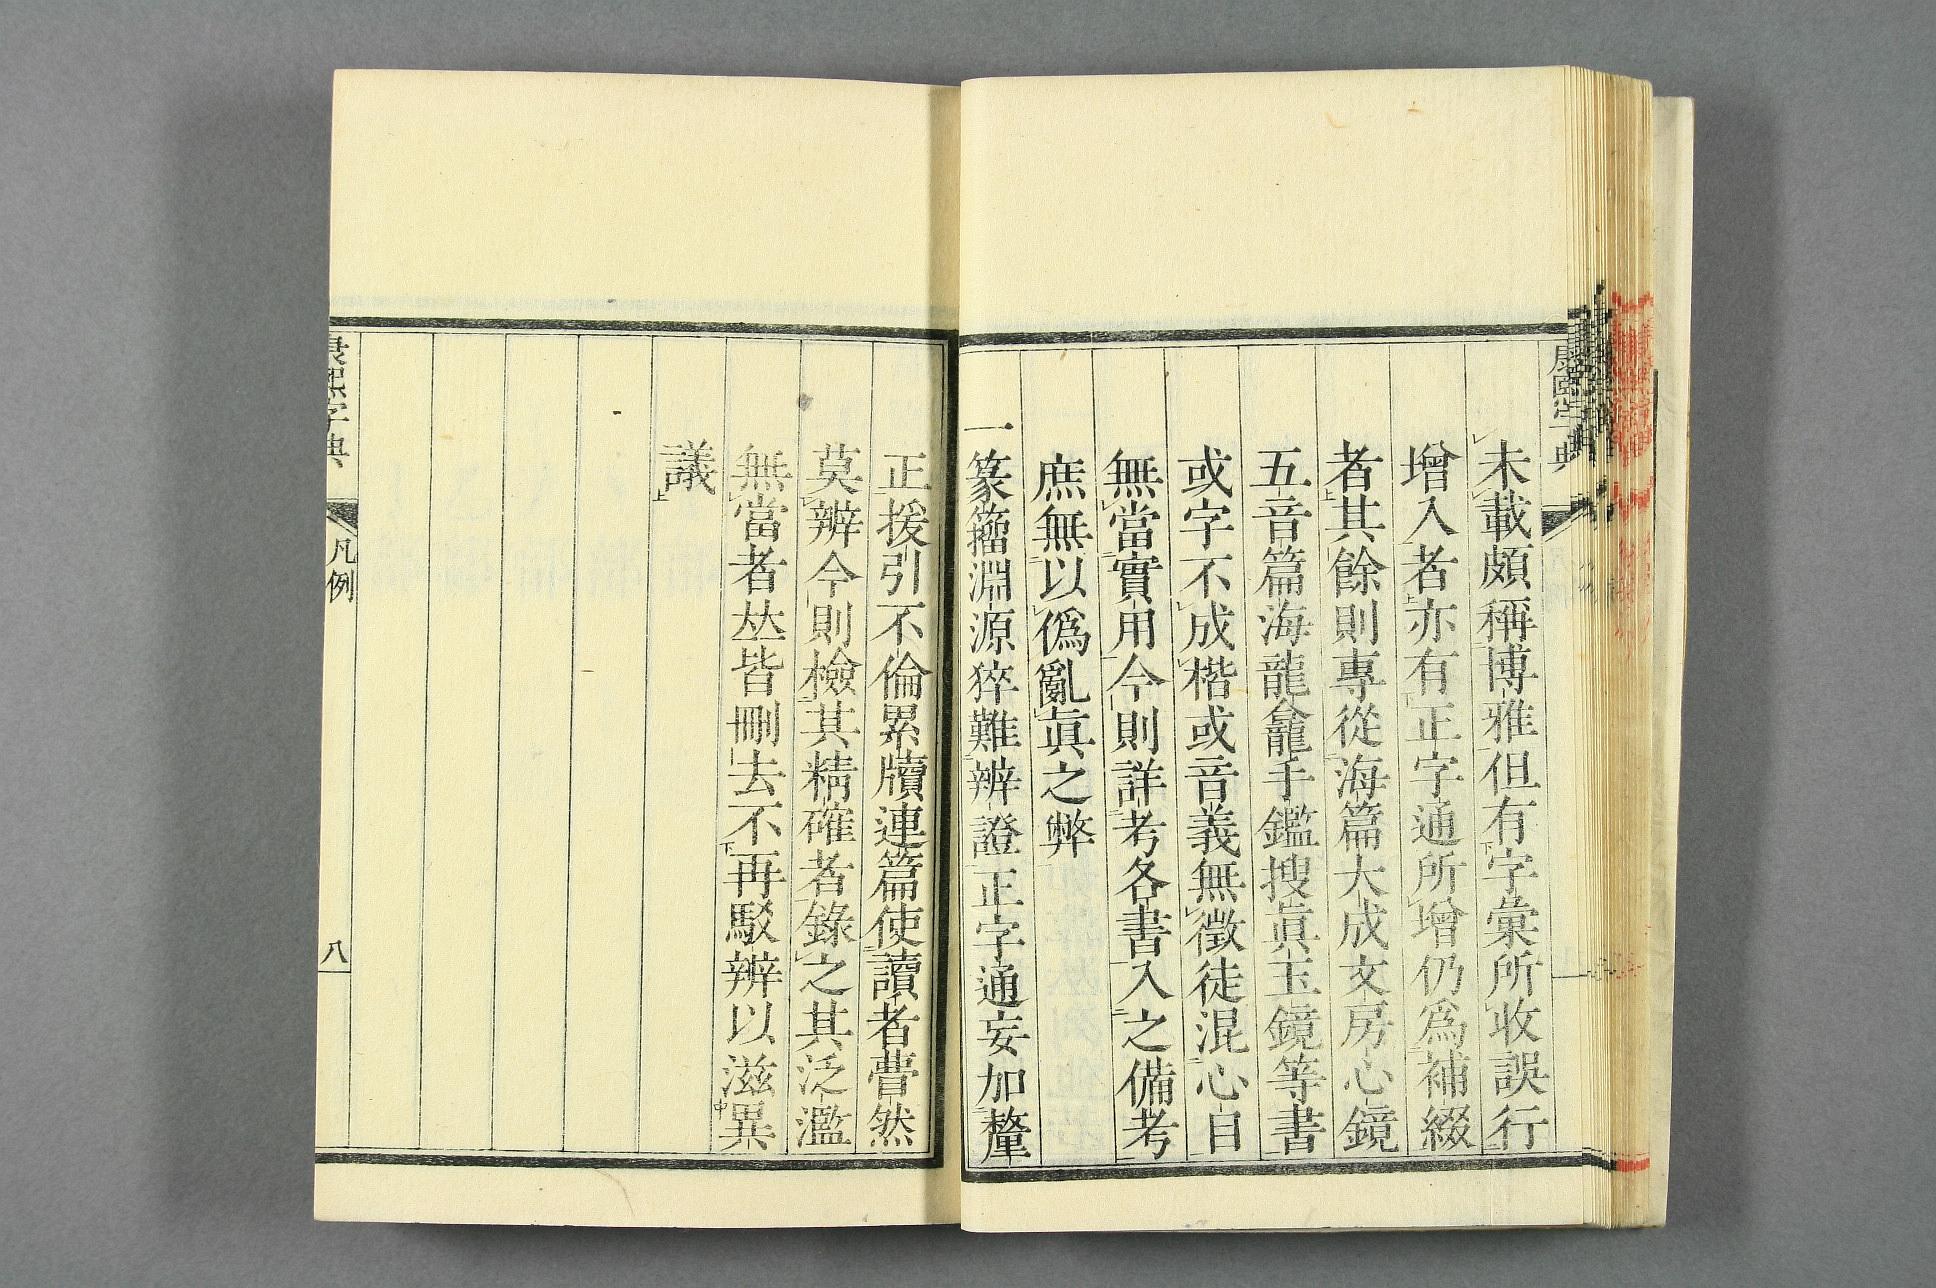 康熙字典
未載頗稱博雅但有字彙所收誤行
增入者亦有正字通所增仍爲補綴
者其餘則專從海篇大成文房心鏡
五音篇海龍龕手鑑搜眞玉鏡等書
或字不成楷或音義無徵徒混心目
無當實用今則詳考各書入之備考
庶無以僞亂眞之弊
一篆籀淵源猝難辨證正字通妄加釐
正援引不倫累牘連篇使讀者瞢然
莫辨今則檢其精確者錄之其泛濫
無當者𠀤皆刪去不再駁辨以滋異
議
康熙字典
凡例
八